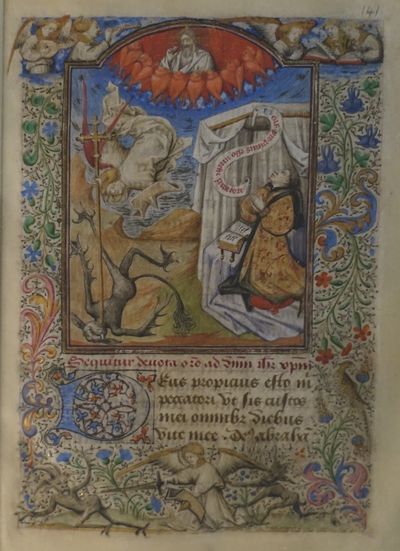 141
Sequitur devota oro ad dnm ihm xpm
Deus propicius esto m
peccatori ut sis custos
mei omnibz diebus
vite mee. Ds abraha